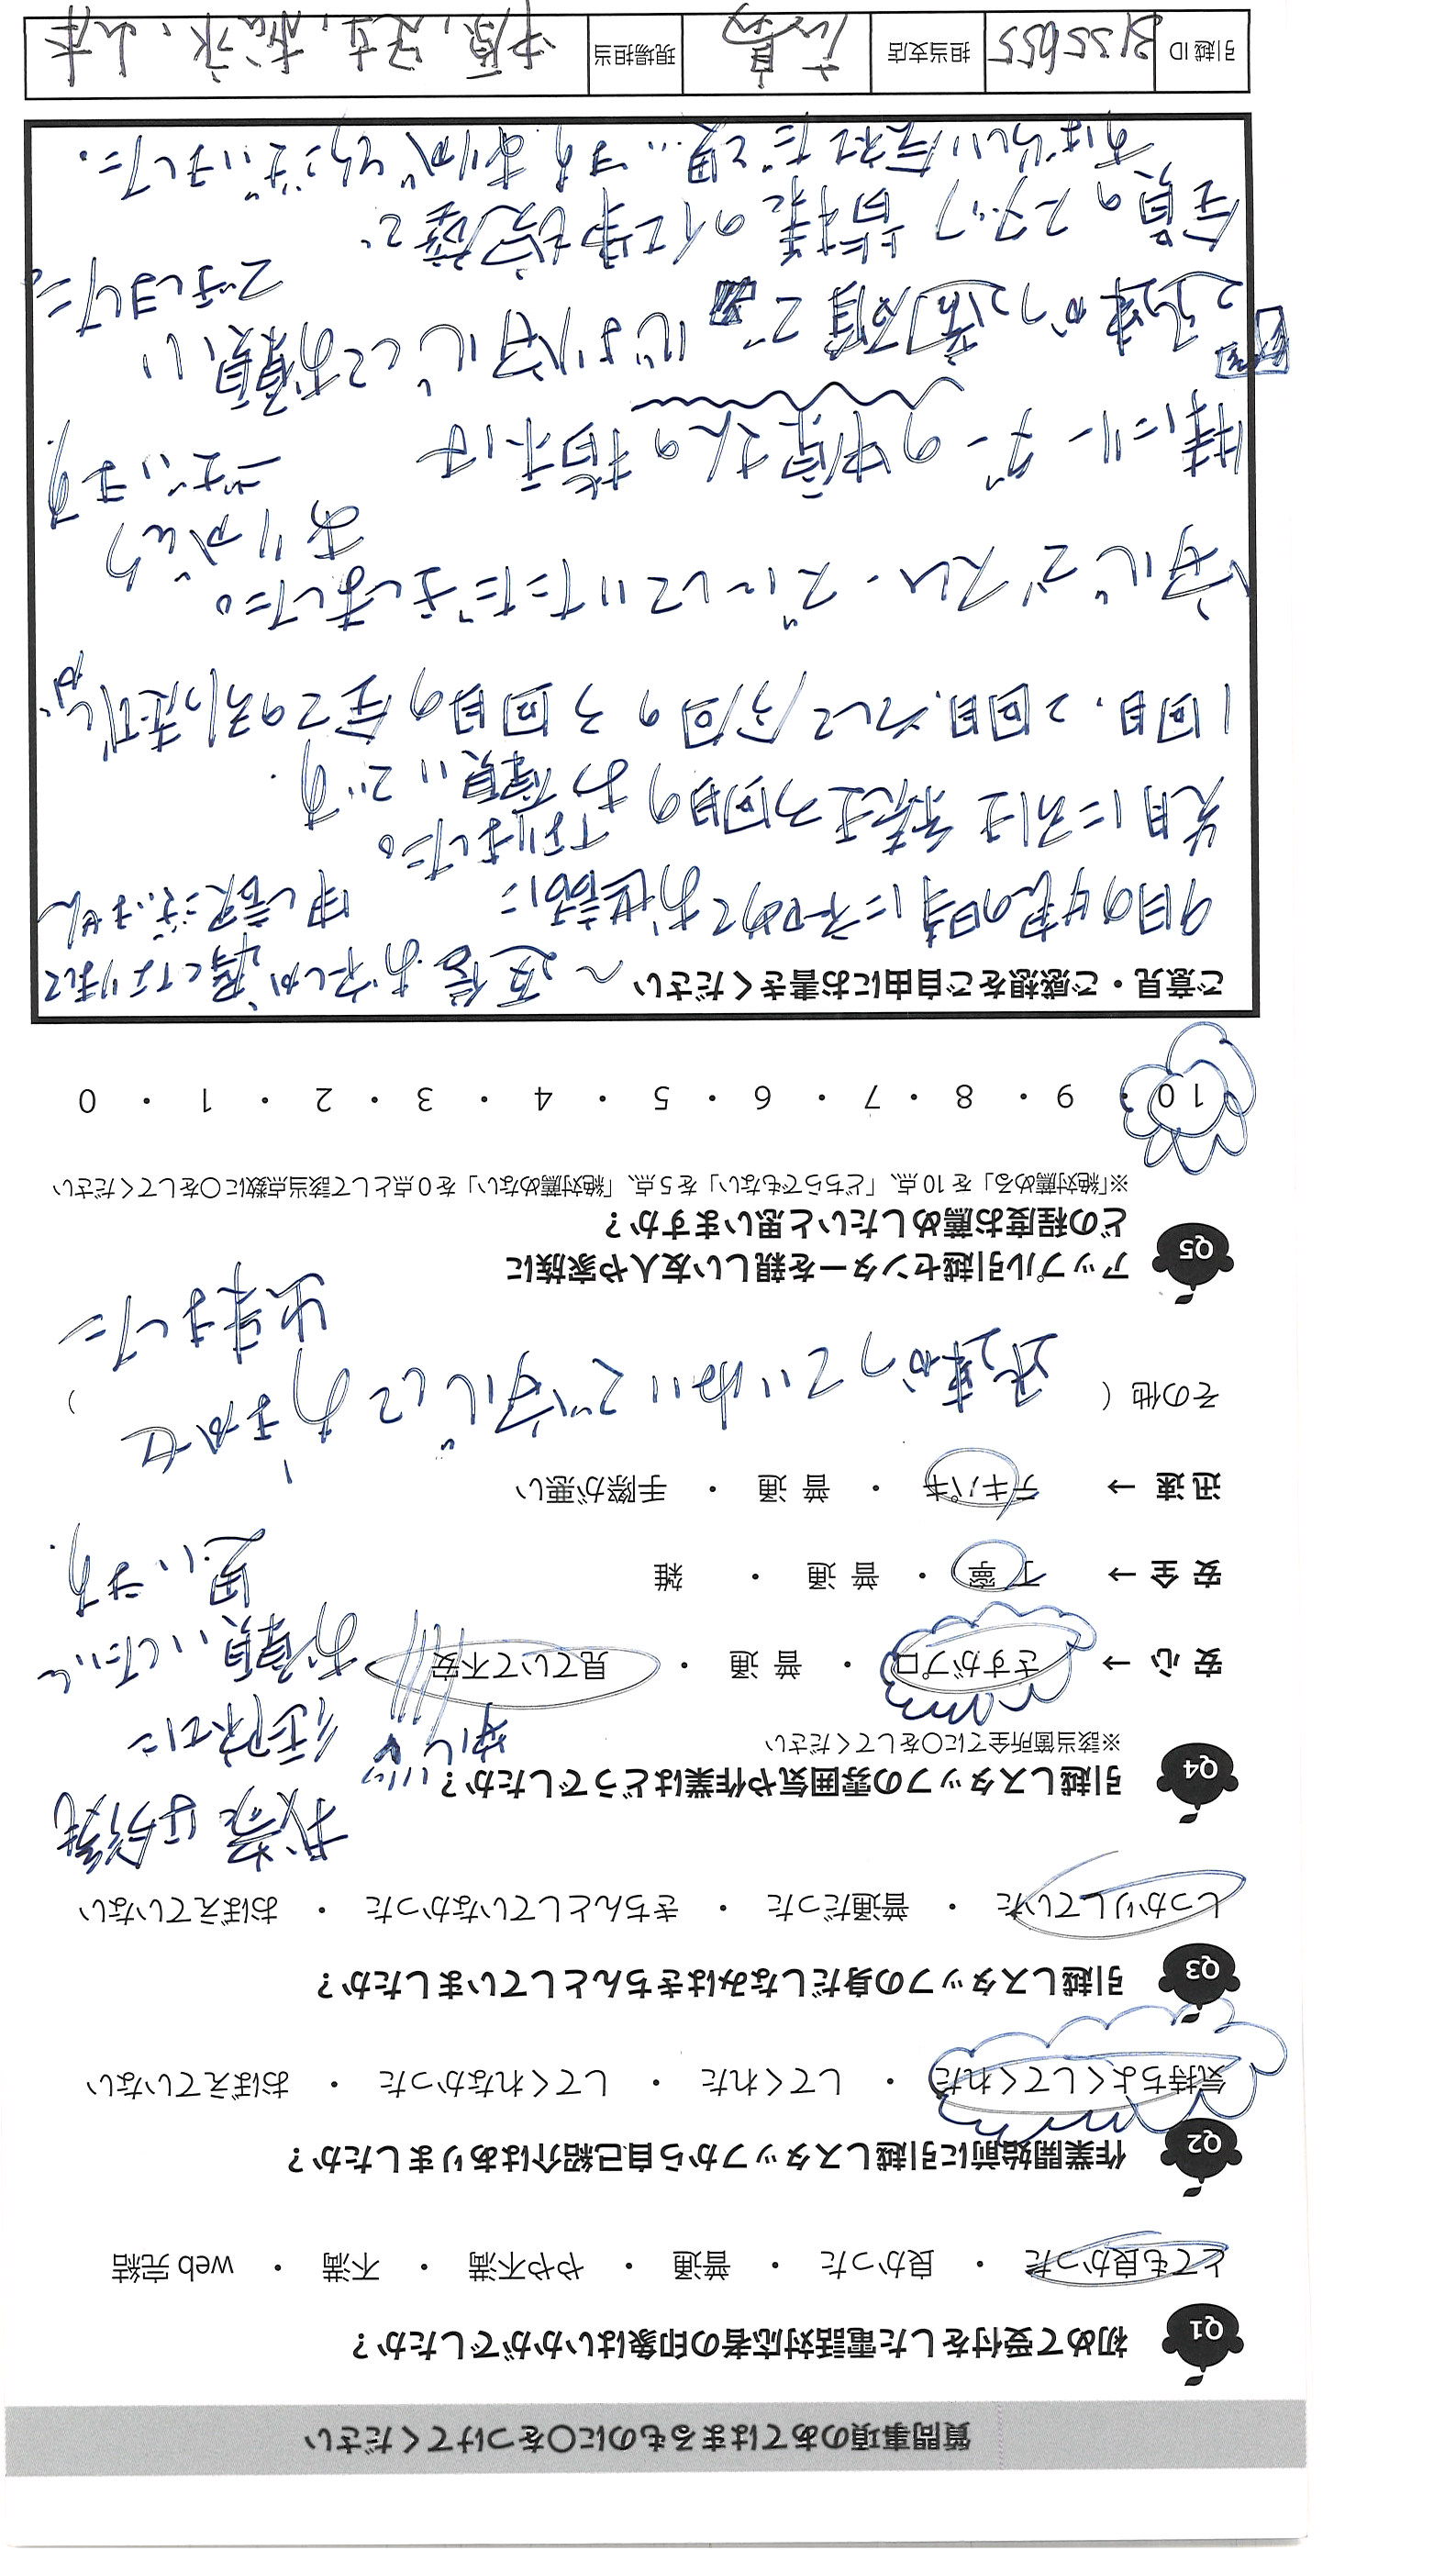 質問事項のあてはまるものに〇をつけてください
Q1 初めて受付をした電話対応者の印象はいかがでしたか？
とても良かった ・ 良かった ・ 普通 ・ やや不満 ・ 不満 ・ web 完結
Q2 作業開始前に引越しスタッフから自己紹介はありましたか？
気持ちよくしてくれた ・ してくれた ・ してくれなかった ・ おぼえていない
Q3 引越しスタッフの身だしなみはきちんとしていましたか？
しっかりしていた ・ 普通だった ・ きちんとしていなかった ・ おぼえていない
Q4 引越しスタッフの雰囲気や作業はどうでしたか？
※該当箇所全てに〇をしてください
安 心 → さすがプロ ・ 普 通 ・ 見ていて不安
無し
我家は
お願いしたいと
思います.
安 全 → 丁 寧 ・ 普 通 ・ 雑
迅 速 → テキパキ ・ 普 通 ・ 手際が悪い
その他 ( 迅速かつていねいで安心しておまかせ
出来ました )
Q5 アップル引越センターを親しい友人や家族に
どの程度お薦めしたいと思いますか？
※「絶対薦める」を 10 点、「どちらでもない」を 5 点、「絶対薦めない」を 0 点として該当点数に〇をしてください
10 ・ 9 ・ 8 ・ 7 ・ 6 ・ 5 ・ 4 ・ 3 ・ 2 ・ 1 ・ 0
ご意見・ご感想をご自由にお書きください
～返信おハガキが遅くなりまして
申し訳ございません
9月の甥の時に初めてお世話に
なりました。
先月には続き3回目のお願いです.
1回目、2回目、そして今回の3回目の全ての引越しが
安心でスムーズにしていただきました。
ありがとう
ございます.
特にリーダーの中原さんの指示は
迅速かつ適確で 心より安心してお願い
できました。
全員のスタッフ皆様の仕事も完璧で
すばらしい会社だと思います ありがとうございました.
引越 ID 3135655 担当支店 現場担当 中原, 足立, 松永, 山本